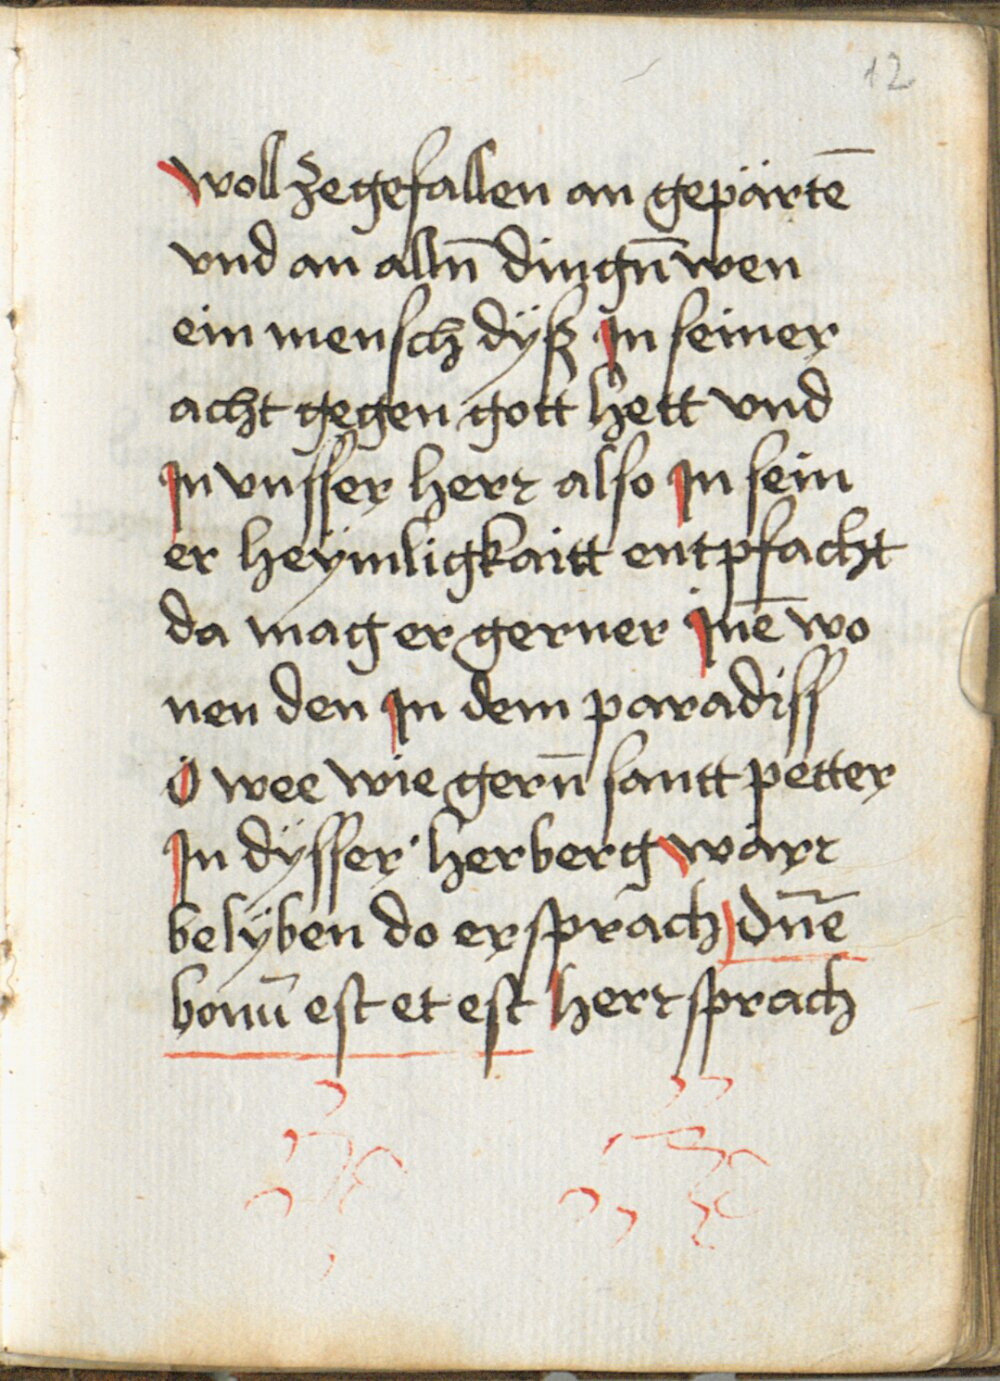 12
woll zegefallen an gepärtē
vnd an alln̄ dingn̄ wen
ein mensch dÿß Jn seiner
acht gegen gott hett vnd
Jn vnsser herr also Jn sein
er heÿmligkaitt entpfacht
da mag er gerner Jnē wo
nen den Jn dem paradiss
O wee wie gern̄ santt petter
Jn dÿsser herberg wär
belÿben do er sprach dn̄e
bonū est et est herr sprach